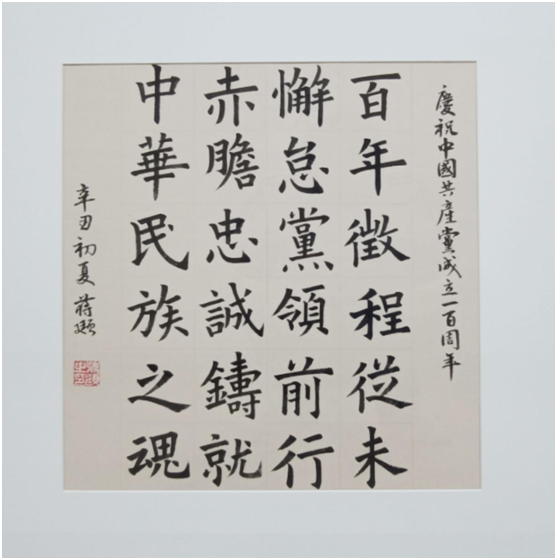 慶祝中國共產黨成立一百周年
百年徵程從未
懈怠黨領前行
赤膽忠誠鑄就
中華民族之魂
辛丑初夏蔣顥